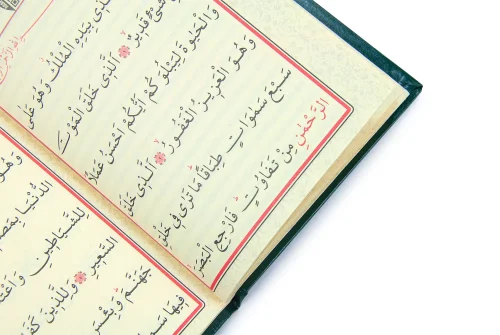 بِيَدِهِ الْمُلْكُ وَهُوَ عَلٰى
شَىْءٍ قَدِيرٌ ۞ اَلَّذِى خَلَقَ الْمَوْتَ
وَالْحَيٰوةَ لِيَبْلُوَكُمْ اَيُّكُمْ اَحْسَنُ عَمَلًا
وَهُوَ الْعَزِيزُ الْغَفُورُ ۞ اَلَّذِى خَلَقَ
سَبْعَ سَمٰوَاتٍ طِبَاقًا مَا تَرٰى فِى خَلْقِ
الرَّحْمٰنِ مِنْ تَفَاوُتٍ فَارْجِعِ الْبَصَرَ
وَهُوَ
الدُّنْيَا بِمَصَا
لِلشَّيَاطِينِ وَاَعْتَ
السَّعِيرِ ۞ وَلِلَّذِينَ كَفَ
جَهَنَّمَ وَبِئْسَ
فِيهَا